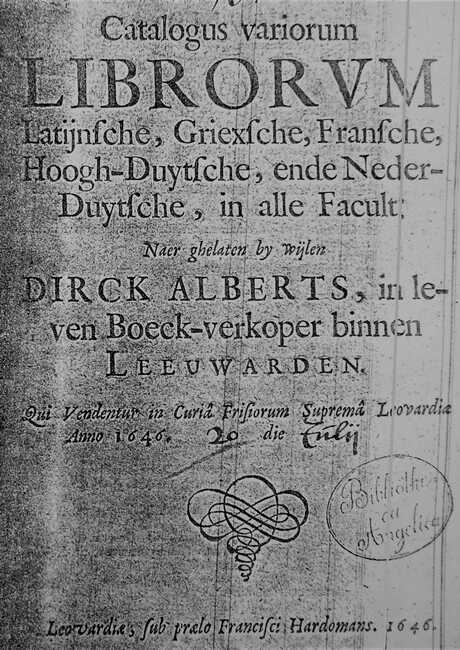 Catalogus variorum
LIBRORVM
Latijnſche, Griexſche, Franſche,
Hoogh-Duytſche, ende Neder-
Duytſche, in alle Facult:
Naer ghelaten by wijlen
DIRCK ALBERTS, in le-
ven Boeck-verkoper binnen
LEEUWARDEN.
Qui Vendentur in Curiâ Friſiorum Supremâ Leovardiæ
Anno 1646. 20 die Iulij
Bibliothe
ca
Angelica
Leovardiæ, ſub prælo Franciſci Hardomans. 1646.